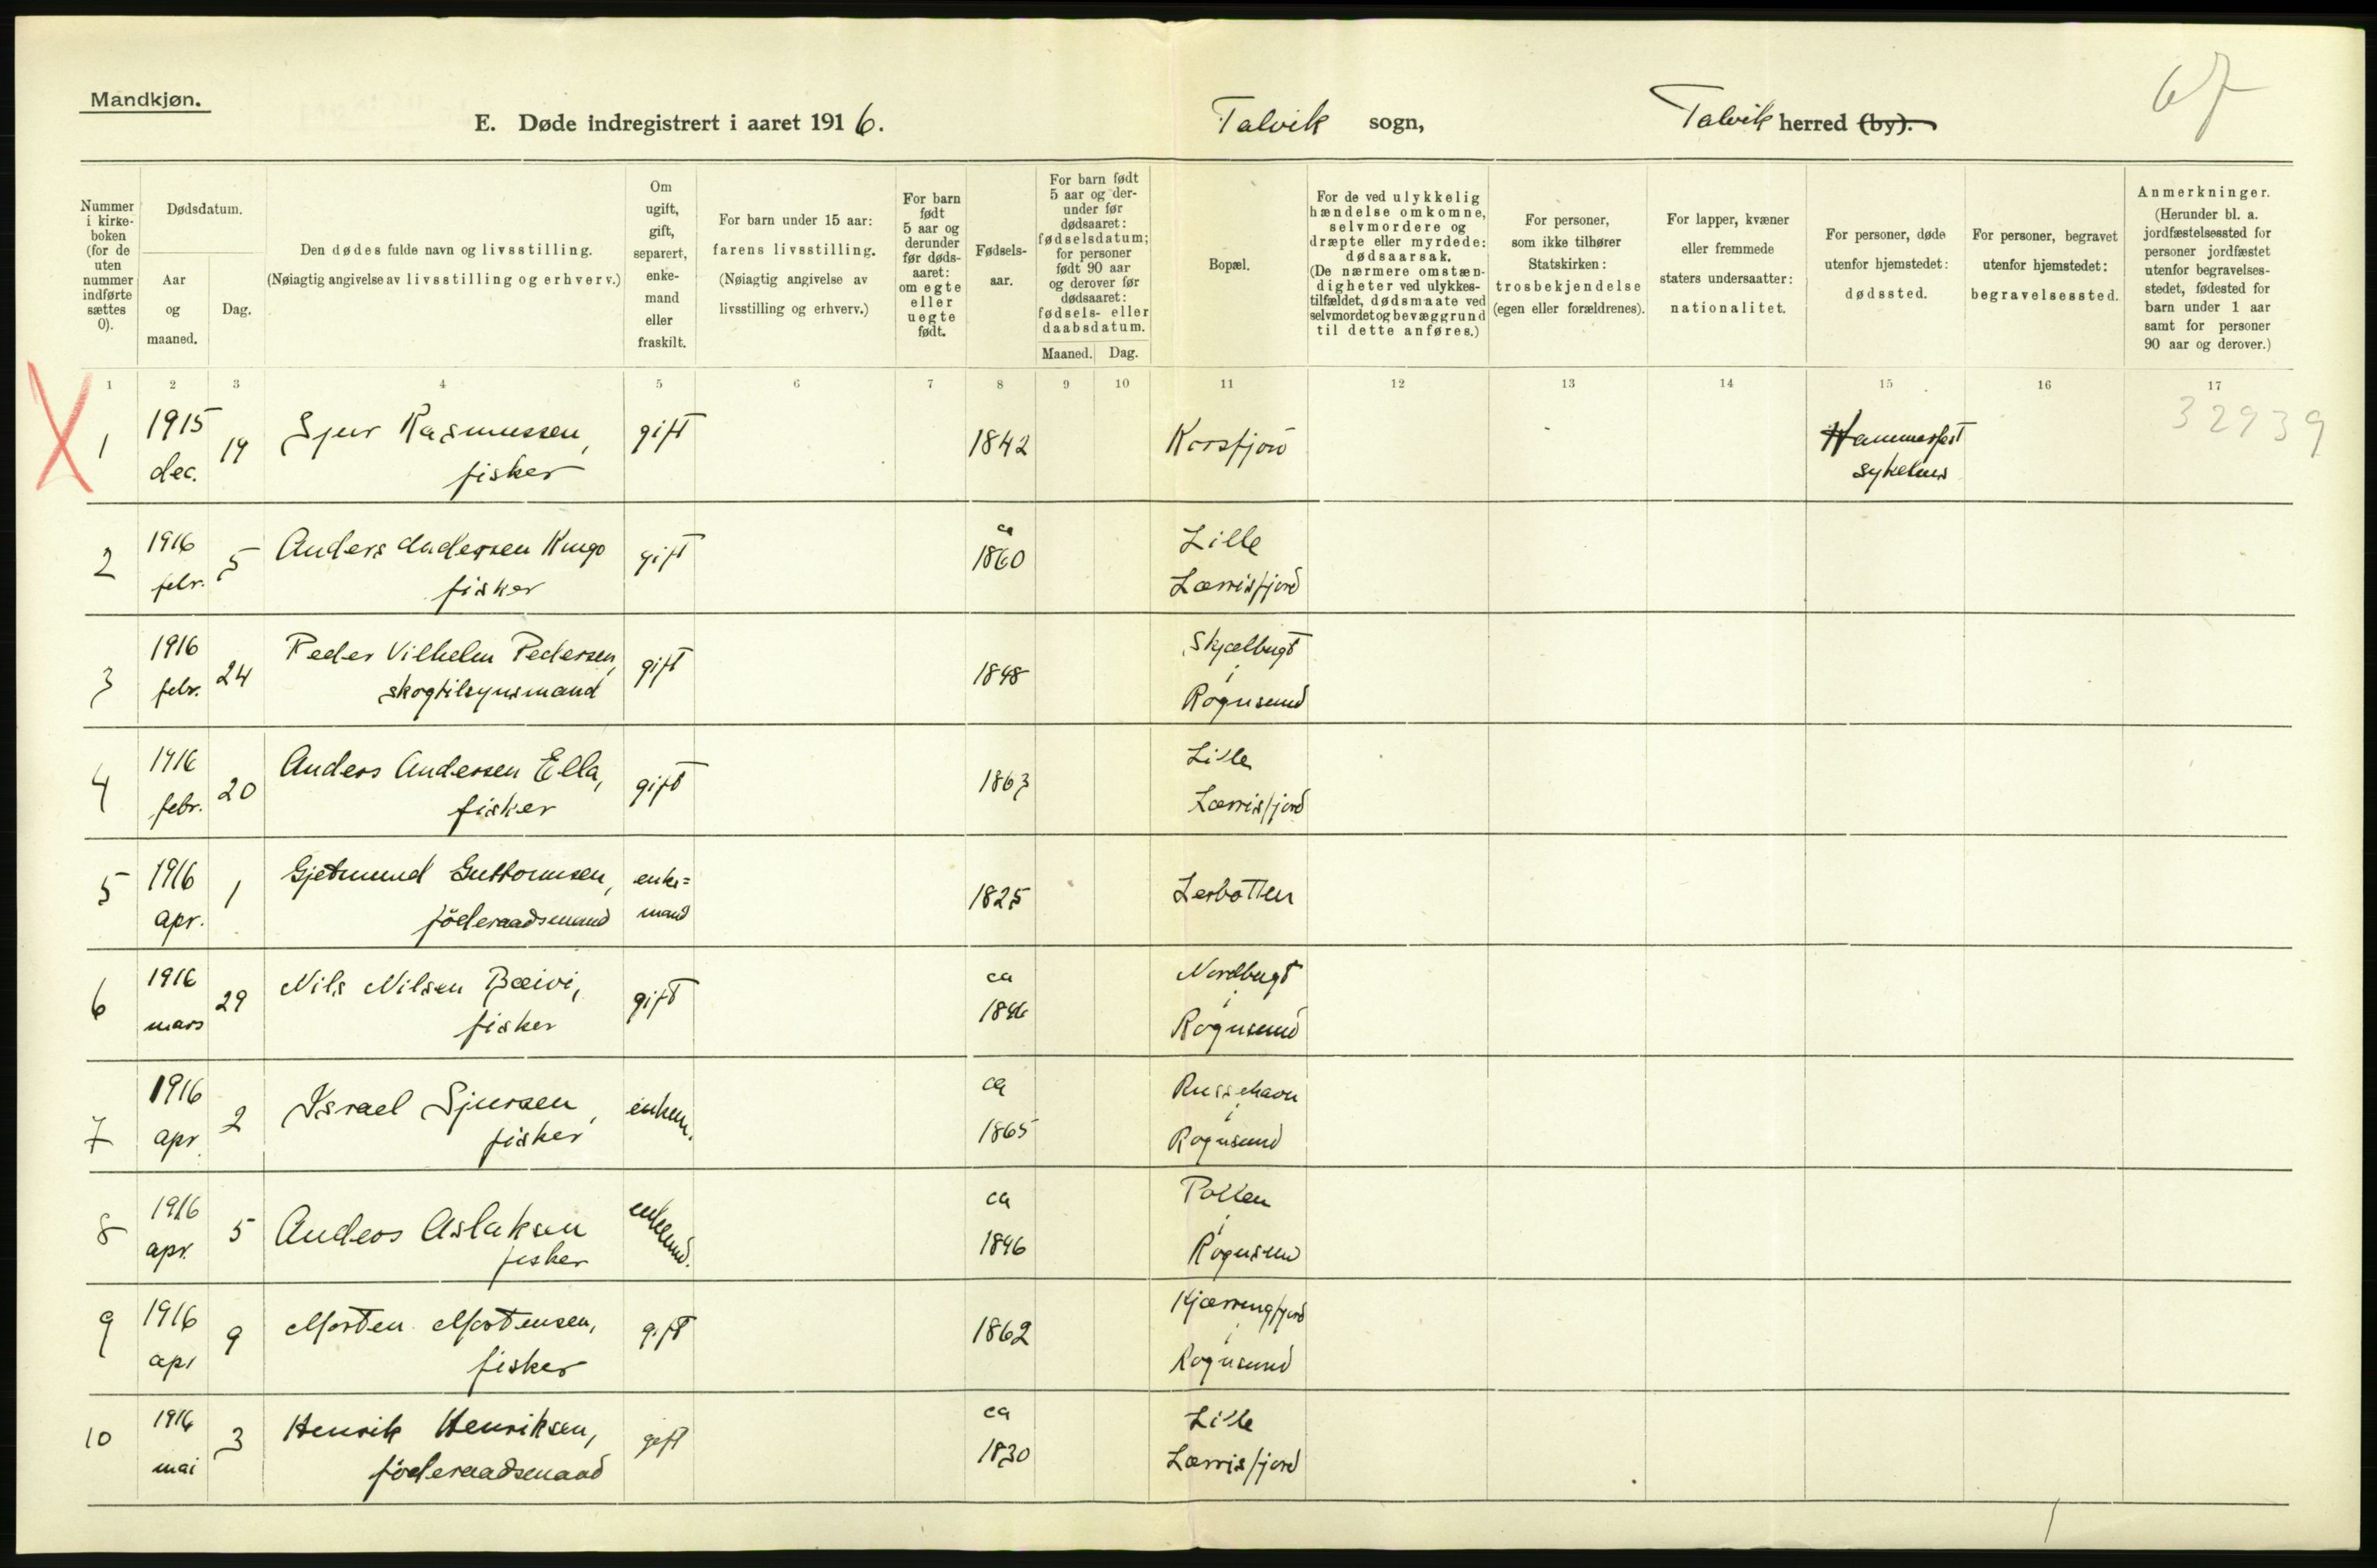 67
Mandkjøn.
E. Døde indregistrert i aaret 1916.
Talvik sogn,
Talvik herred (by).
Nummer i kirke-boken (for de uten nummer indførte sættes 0).
Dødsdatum.
Aar og maaned.
Dag.
Den dødes fulde navn og livsstilling.
(Nøiagtig angivelse av livsstilling og erhverv.)
Om ugift, gift, separert, enke-mand eller fraskilt.
For barn under 15 aar:
farens livsstilling.
(Nøiagtig angivelse av livsstilling og erhverv.)
For barn født 5 aar og derunder før døds-aaret: om egte eller uegte født.
Fødsels-aar.
For barn født 5 aar og der-under før dødsaaret: fødselsdatum; for personer født 90 aar og derover før dødsaaret: fødsels- eller daabsdatum.
Maaned. Dag.
Bopæl.
For de ved ulykkelig hændelse omkomne, selvmordere og dræpte eller myrdede: dødsaarsak.
(De nærmere omstæn-digheter ved ulykkes-tilfældet, dødsmaate ved selvmordet og bevæggrund til dette anføres.)
For personer, som ikke tilhører Statskirken: trosbekjendelse (egen eller forældrenes).
For lapper, kvæner eller fremmede staters undersaatter: nationalitet.
For personer, døde utenfor hjemstedet: dødssted.
For personer, begravet utenfor hjemstedet: begravelsessted.
Anmerkninger.
(Herunder bl. a. jordfæstelsessted for personer jordfæstet utenfor begravelses-stedet, fødested for barn under 1 aar samt for personer 90 aar og derover.)
1 2 3 4 5 6 7 8 9 10 11 12 13 14 15 16 17
X
1 1915 dec. 19 Sjur Rasmussen, fisker gift 1842 Korsfjord Hammerfest sykehus 32939
2 1916 febr. 5 Anders Andersen Kingo fisker gift ca 1860 Lille Lerrisfjord
3 1916 febr. 24 Peder Vilhelm Pedersen, skogtilsynsmand gift 1848 Skjælbugt i Rognsund
4 1916 febr. 20 Anders Andersen Ella, fisker gift 1863 Lille Lerrisfjord
5 1916 apr. 1 Gjetmund Guttormsen, föderaadsmand enke=mand 1825 Lerbotten
6 1916 mars 29 Nils Nilsen Bæivi, fisker gift ca 1846 Nordbugt i Rognsund
7 1916 apr. 2 Israel Sjursen, fisker enkem. ca 1865 Russehavn i Rognsund
8 1916 apr. 5 Anders Aslaksen fisker enkemd. ca 1846 Pollen i Rognsund
9 1916 apr 9 Morten Mortensen, fisker gift 1862 Kjærringfjord i Rognsund
10 1916 mai 3 Henrik Henriksen, föderaadsmand gift ca 1830 Lille Lerrisfjord